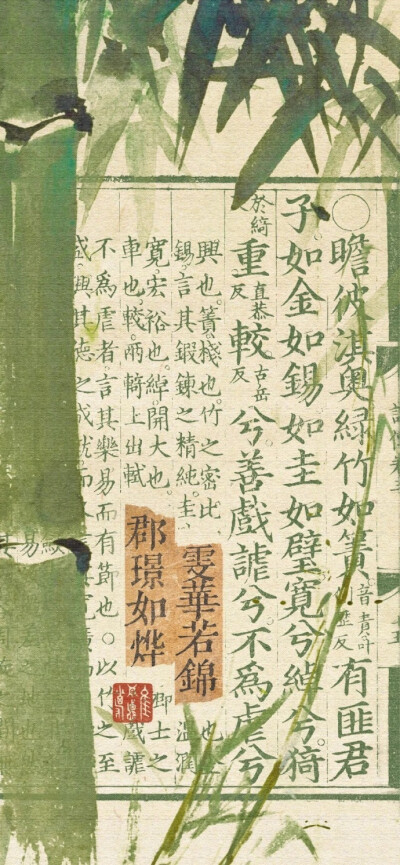 ○瞻彼淇奧綠竹如簀音責叶歷反有匪君
子如金如錫如圭如璧寬兮綽兮猗
於綺反重直恭反較古岳反兮善戲謔兮不為虐兮
興也。簀棧也。竹之密比
雯華若錦
錫言其鍛鍊之精純。圭
溫潤
寬宏裕也。綽開大也
郡璟如烨
卿士之
車也。較兩輢上出軾
戲謔
不為虐者言其樂易而有節也○以竹之至
盛興其德之成就而